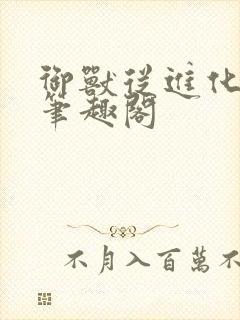 御獸從進化
筆趣閣
不月入百萬不